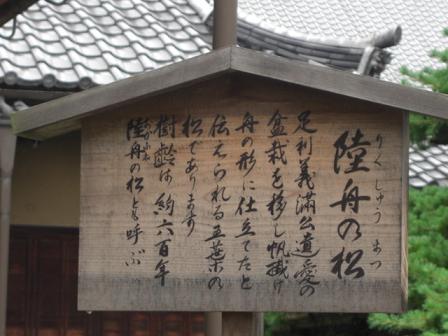 陸舟の松
りくしゅうまつ
足利義満公遺愛の
盆栽を移し帆掛け
舟の形に仕立てたと
伝えられる五葉の
松であります
樹齢は約六百年
陸舟の松とも呼ぶ